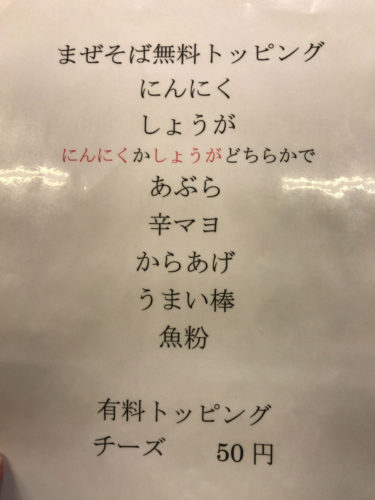 まぜそば無料トッピング
にんにく
しょうが
にんにくかしょうがどちらかで
あぶら
辛マヨ
からあげ
うまい棒
魚粉
有料トッピング
チーズ 50円